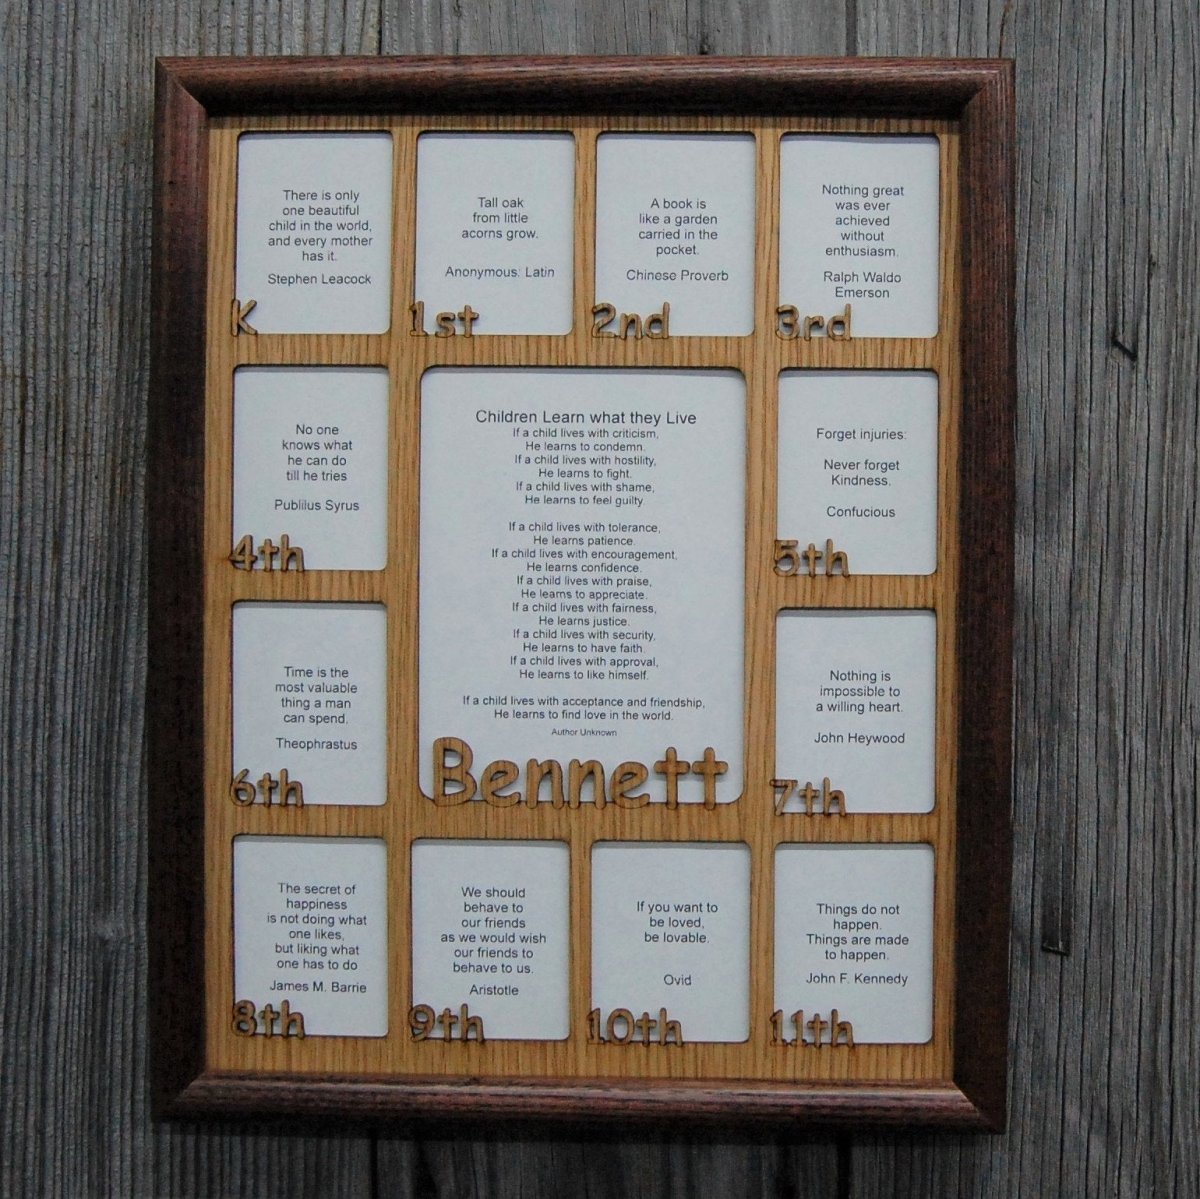 There is only
one beautiful
child in the world,
and every mother
has it.
Stephen Leacock
K
Tall oak
from little
acorns grow.
Anonymous: Latin
1st
A book is
like a garden
carried in the
pocket.
Chinese Proverb
2nd
Nothing great
was ever
achieved
without
enthusiasm.
Ralph Waldo
Emerson
3rd
No one
knows what
he can do
till he tries
Publilus Syrus
4th
Children Learn what they Live
If a child lives with criticism,
He learns to condemn.
If a child lives with hostility,
He learns to fight.
If a child lives with shame,
He learns to feel guilty
If a child lives with tolerance,
He learns patience.
If a child lives with encouragement,
He learns confidence.
If a child lives with praise,
He learns to appreciate.
If a child lives with fairness,
He learns justice.
If a child lives with security,
He learns to have faith.
If a child lives with approval,
He learns to like himself.
If a child lives with acceptance and friendship,
He learns to find love in the world.
Author Unknown
Bennett
Forget injuries:
Never forget
Kindness.
Confucious
5th
Time is the
most valuable
thing a man
can spend.
Theophrastus
6th
Nothing is
impossible to
a willing heart.
John Heywood
7th
The secret of
happiness
is not doing what
one likes,
but liking what
one has to do
James M. Barrie
8th
We should
behave to
our friends
as we would wish
our friends to
behave to us.
Aristotle
9th
If you want to
be loved,
be lovable.
Ovid
10th
Things do not
happen.
Things are made
to happen.
John F. Kennedy
11th